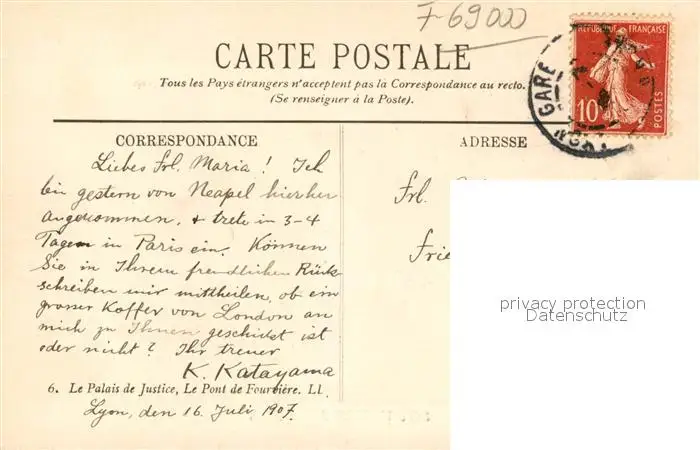 F-69000
CARTE POSTALE
Tous les Pays étrangers n'acceptent pas la Correspondance au recto.
(Se renseigner à la Poste).
REPUBLIQUE FRANÇAISE
10
POSTES
GARE
CORRESPONDANCE
Liebes Frl. Maria! Ich
bin gestern von Neapel hierher
angekommen, + trete in 3-4
Tagen in Paris ein. Können
Sie in Ihrem freundlichen Rück-
schreiben mir mittheilen, ob ein
grosser Koffer von London an
mich zu Ihnen geschickt ist
oder nicht? Ihr treuer
K. Katayama
6. Le Palais de Justice, Le Pont de Fourvière. LL.
Lyon, den 16. Juli 1907.
ADRESSE
Frl.
Frie
privacy protection
Datenschutz